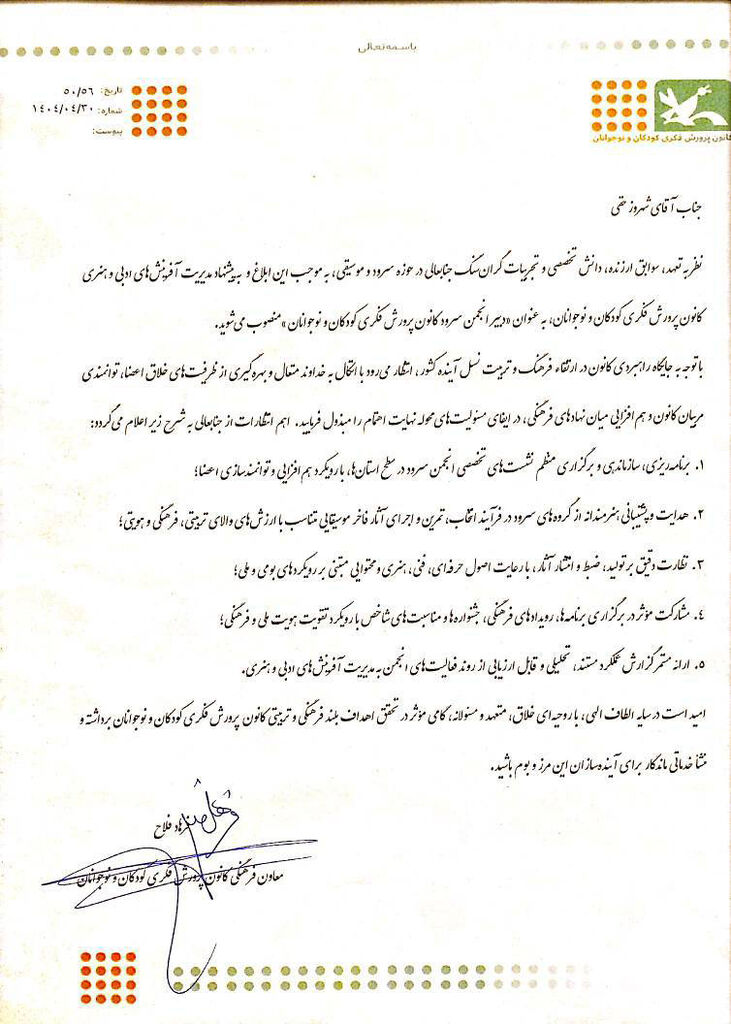 باسمه تعالی
تاریخ: ۵۰/۵۶
شماره: ۱۴۰۴/۰۴/۳۰
پیوست:
کانون پرورش فکری کودکان و نوجوانان
جناب آقای شهروز حقی
نظر به تعهد، سوابق ارزنده، دانش تخصصی و تجربیات گران‌سنگ جنابعالی در حوزه سرود و موسیقی، به موجب این ابلاغ و به پیشنهاد مدیریت آفرینش‌های ادبی و هنری
کانون پرورش فکری کودکان و نوجوانان، به عنوان «دبیر انجمن سرود کانون پرورش فکری کودکان و نوجوانان» منصوب می‌شوید.
با توجه به جایگاه راهبردی کانون در ارتقاء فرهنگ و تربیت نسل آینده کشور، انتظار می‌رود با اتکال به خداوند متعال و بهره‌گیری از ظرفیت‌های خلاق اعضا، توانمندی
مربیان کانون و هم‌افزایی میان نهادهای فرهنگی، در ایفای مسئولیت‌های محوله نهایت اهتمام را مبذول فرمایید. اهم انتظارات از جنابعالی به شرح زیر اعلام می‌گردد:
۱. برنامه‌ریزی، سازماندهی و برگزاری منظم نشست‌های تخصصی انجمن سرود در سطح استان‌ها، با رویکرد هم‌افزایی و توانمندسازی اعضا؛
۲. هدایت و پشتیبانی هنرمندانه از گروه‌های سرود در فرآیند انتخاب، تمرین و اجرای آثار فاخر موسیقایی متناسب با ارزش‌های والای تربیتی، فرهنگی و هویتی؛
۳. نظارت دقیق بر تولید، ضبط و انتشار آثار، با رعایت اصول حرفه‌ای، فنی، هنری و محتوایی مبتنی بر رویکردهای بومی و ملی؛
۴. مشارکت مؤثر در برگزاری برنامه‌ها، رویدادهای فرهنگی، جشنواره‌ها و مناسبت‌های شاخص با رویکرد تقویت هویت ملی و فرهنگی؛
۵. ارائه مستمر گزارش عملکرد مستند، تحلیلی و قابل ارزیابی از روند فعالیت‌های انجمن به مدیریت آفرینش‌های ادبی و هنری.
امید است در سایه الطاف الهی، با روحیه‌ای خلاق، متعهد و مسئولانه، گامی مؤثر در تحقق اهداف بلند فرهنگی و تربیتی کانون پرورش فکری کودکان و نوجوانان برداشته و
منشأ خدماتی ماندگار برای آینده‌سازان این مرز و بوم باشید.
فلاح
معاون فرهنگی کانون پرورش فکری کودکان و نوجوانان